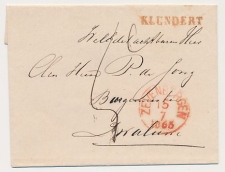 KLUNDERT
Weledelachtbaren Heer
Den Heer P. de Jong
Burgemeester
ZEVENBERGEN
15
7
1865